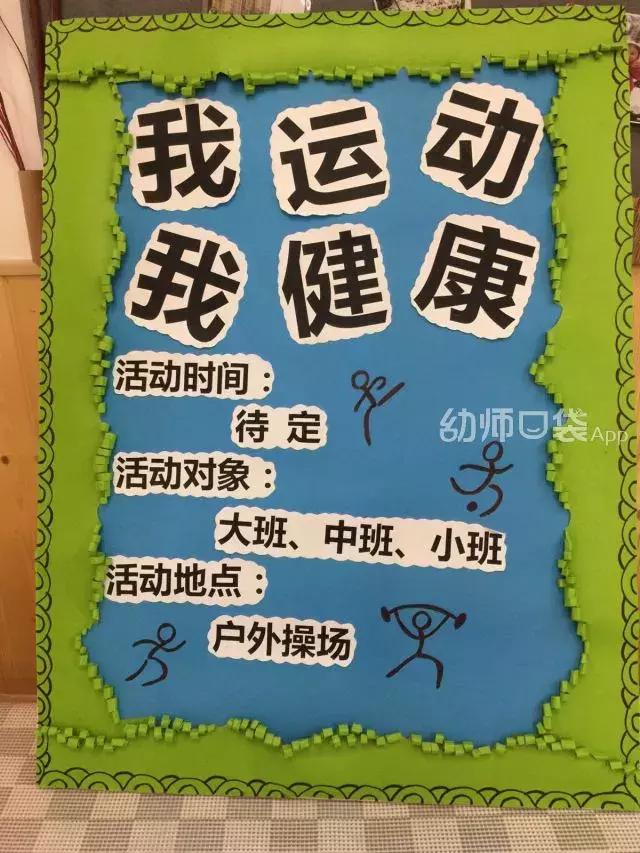 我运动
我健康
活动时间：
待定
活动对象：
大班、中班、小班
活动地点：
户外操场
幼师口袋App